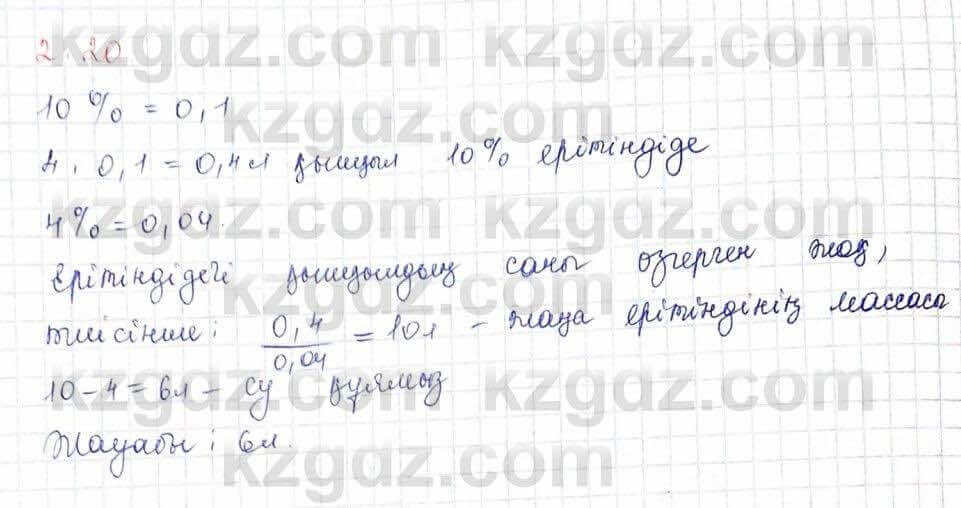 2.20
10 % = 0,1
4 . 0,1 = 0,4 л қышқыл 10% ерітіндіде
4% = 0,04.
Ерітіндідегі қышқылдың саны өзгерген жоқ,
тиісінше : 0,4 / 0,04 = 10л – жаңа ерітіндінің массасы
10 – 4 = 6л – су құямыз
Жауабы : 6л.
kzgaz.com kzgaz.com
kzgaz.com
kzgaz.com kzgaz.com
kzgaz.com
kzgaz.com kzgaz.com
kzgaz.com